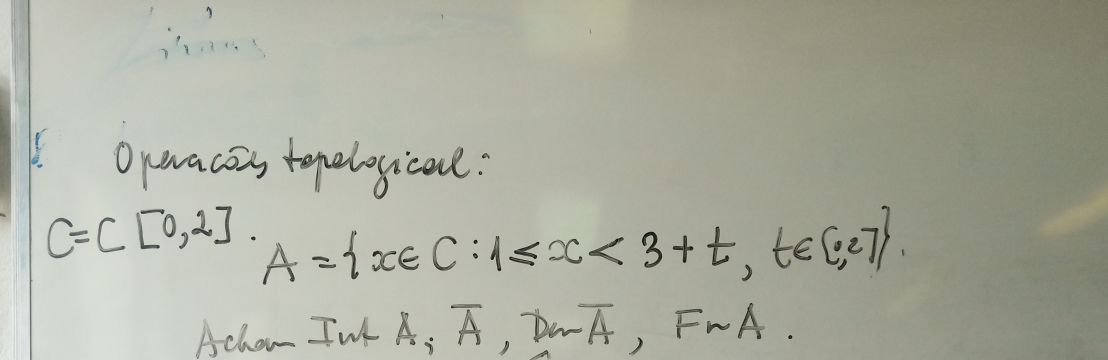 Operações topological:
C=C[0,2].
A={x∈C:1≤x<3+t, t∈[0,2]}.
Achar Int A; Ā, Ā, Fr A.